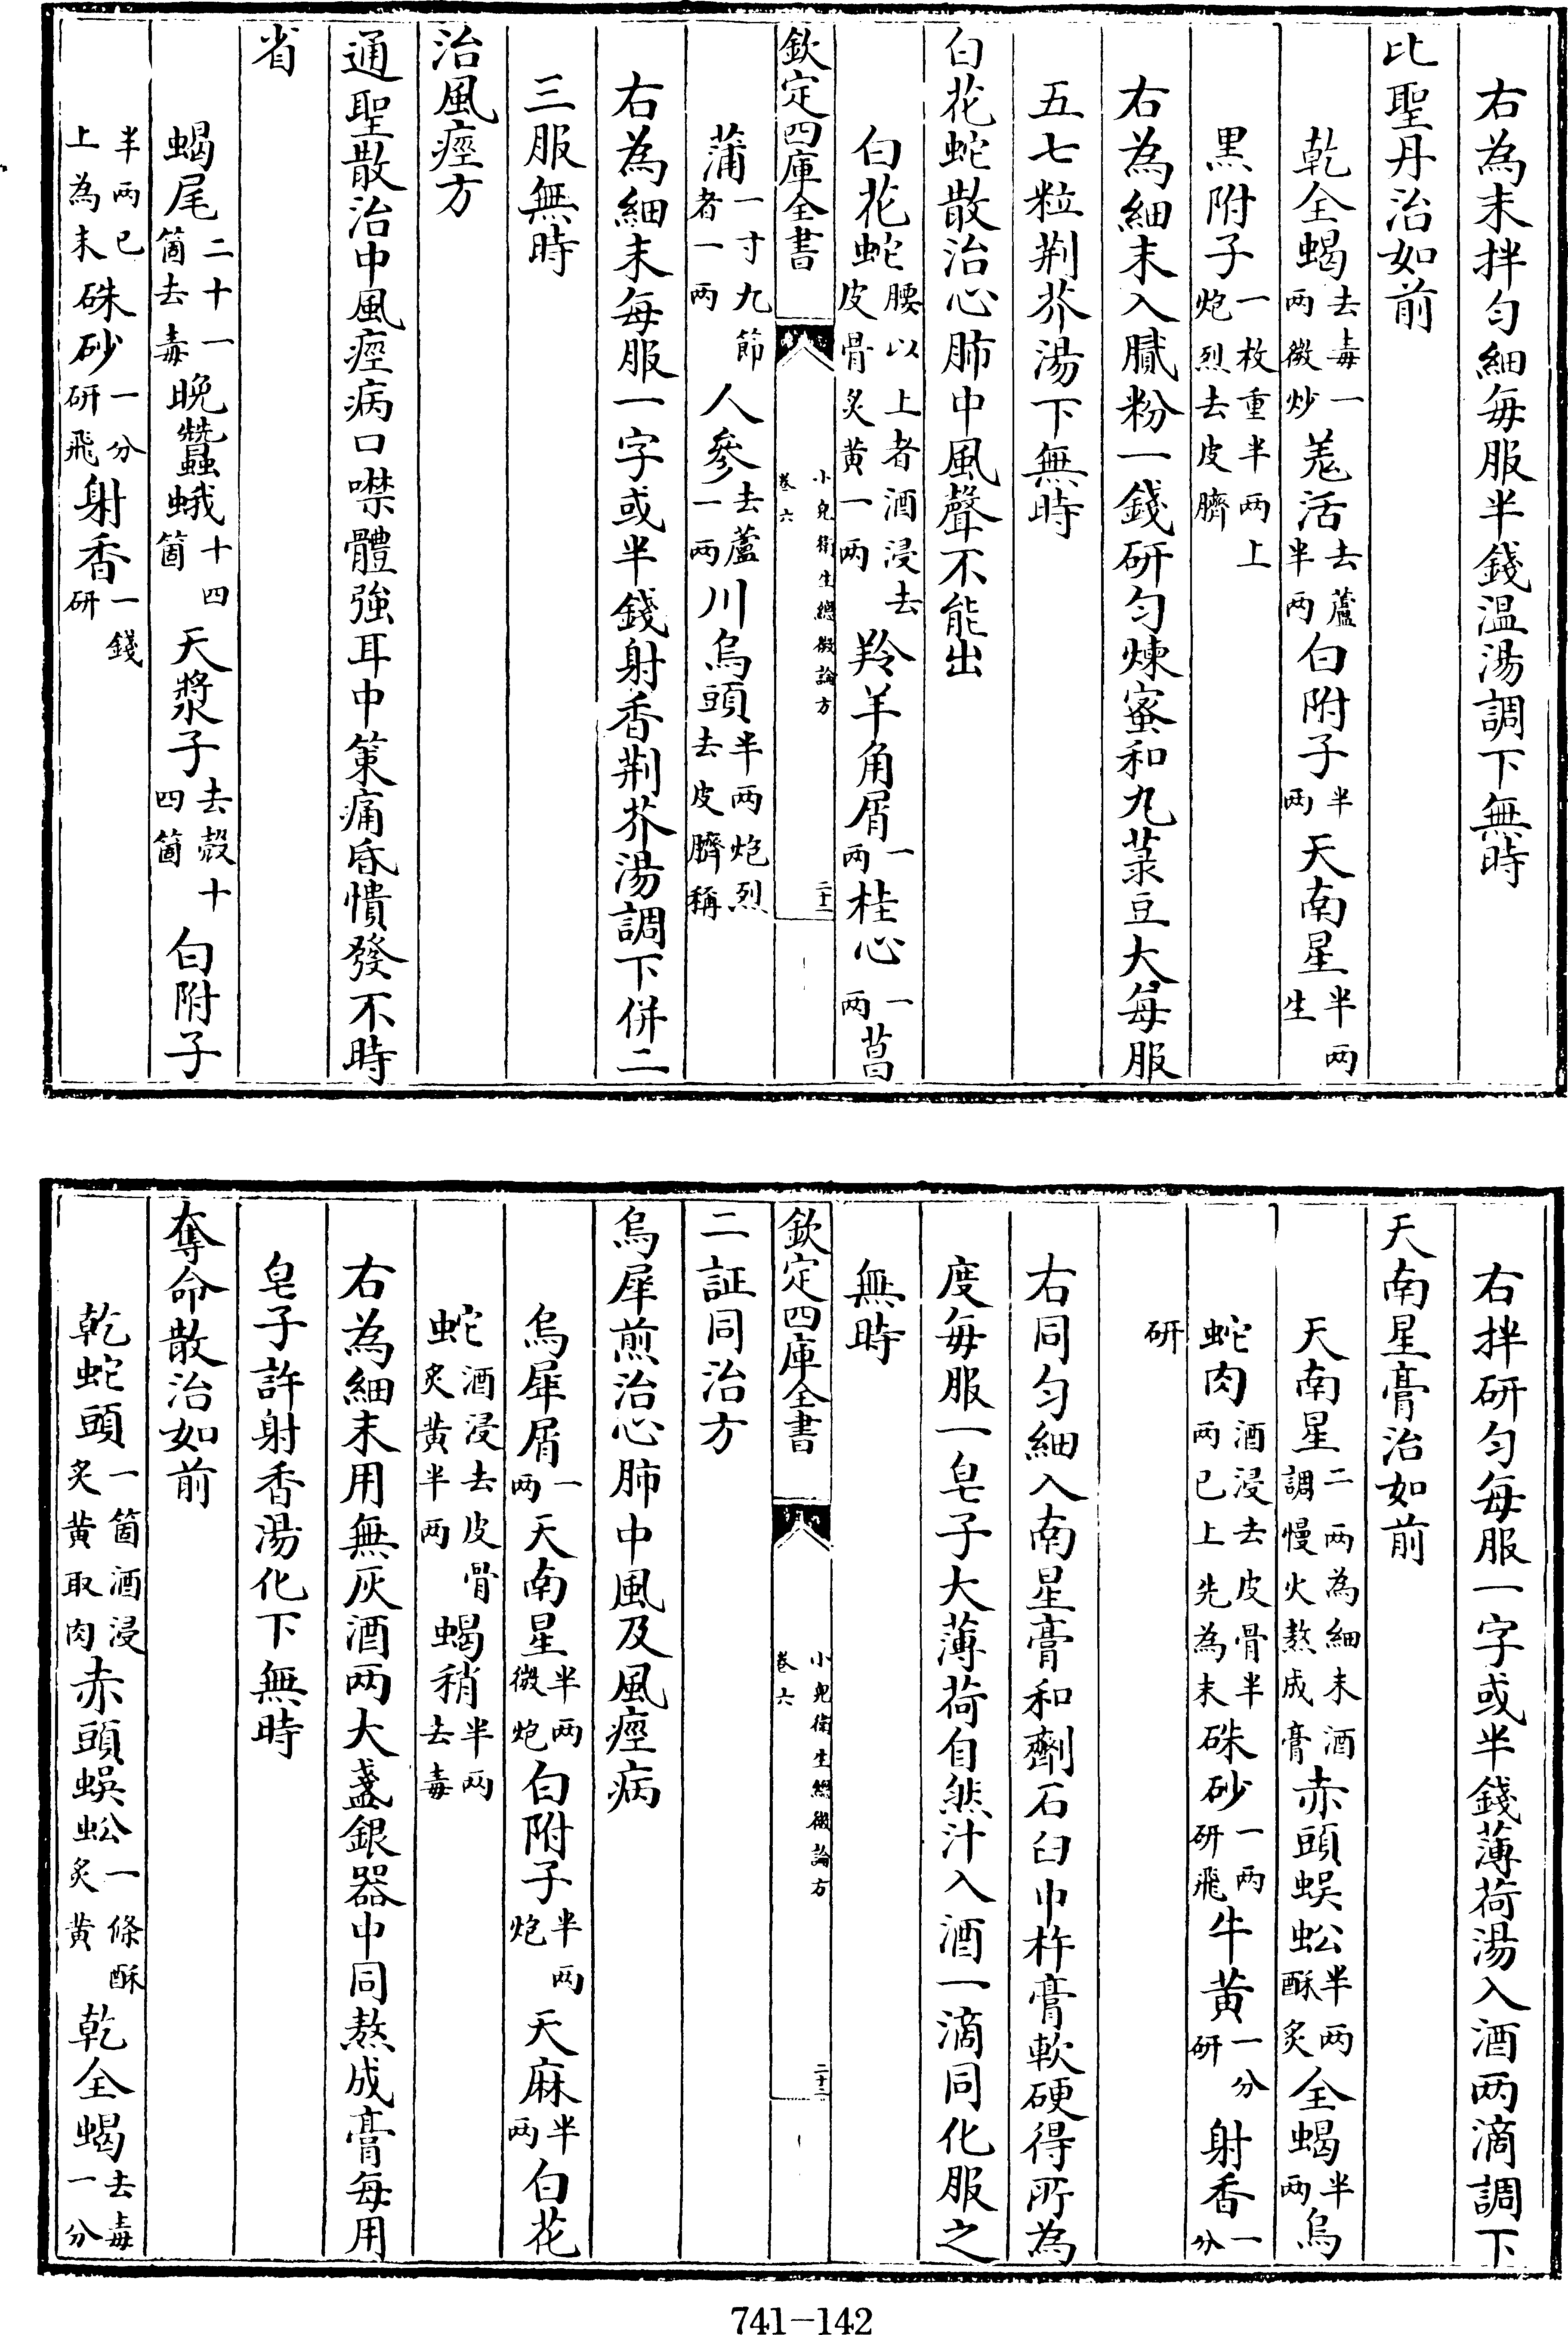 右為末拌勻細每服半錢温湯調下無時
比聖丹治如前
乾全蝎去毒一两微炒羗活去蘆半两白附子半两天南星半两生
黒附子一枚重半两上炮烈去皮臍
右為細末入膩粉一錢研勻煉蜜和丸菉豆大每服
五七粒荆芥湯下無時
白花蛇散治心肺中風聲不能出
白花蛇腰以上者酒浸去皮骨炙黄一两羚羊角屑一两桂心一两菖
欽定四庫全書
小兒衛生總微論方
卷六
二十一
蒲一寸九節者一两人參去蘆一两川烏頭半两炮烈去皮臍稱
右為細末每服一字或半錢射香荆芥湯調下併二
三服無時
治風痙方
通聖散治中風痙病口噤體強耳中策痛昏憒發不時
省
蝎尾二十一箇去毒晚蠶蛾十四箇天漿子去殼十四箇白附子
半两已上為末硃砂一分研飛射香一錢研
右拌研勻每服一字或半錢薄荷湯入酒两滴調下
天南星膏治如前
天南星二两為細末酒調慢火熬成膏赤頭蜈蚣半两酥炙全蝎半两烏
蛇肉酒浸去皮骨半两已上先為末硃砂一两研飛牛黄一分研射香一分
研
右同勻細入南星膏和劑石臼中杵膏軟硬得所為
度每服一皂子大薄荷自然汁入酒一滴同化服之
無時
欽定四庫全書
小兒衛生總微論方
卷六
二十二
二証同治方
烏犀煎治心肺中風及風痙病
烏犀屑一两天南星半两微炮白附子半两炮天麻半两白花
蛇酒浸去皮骨炙黄半两蝎稍半两去毒
右為細末用無灰酒两大盞銀器中同熬成膏每用
皂子許射香湯化下無時
奪命散治如前
乾蛇頭一箇酒浸炙黄取肉赤頭蜈蚣一條酥炙黄乾全蝎去毒一分
741-142